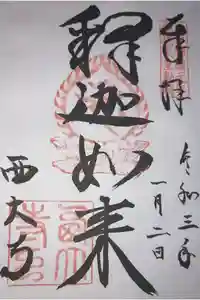 奉拝
令和三年
一月二日
釋迦如来
西大寺